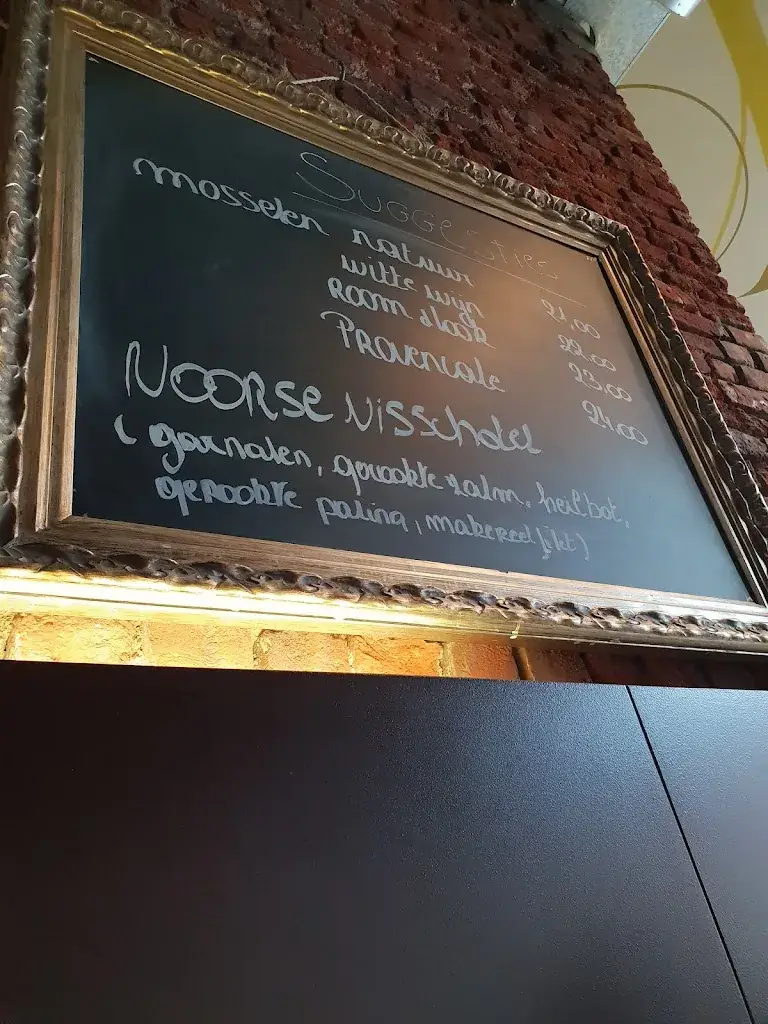 SUGGESTIES
mosselen natuur 21,00
witte wijn 22.00
ROOM & look 23.00
PROVENCALE 24.00
NOORSE VISSCHOTEL
( garnalen, gerookte zalm, heilbot,
gerookte paling, makereel filet)